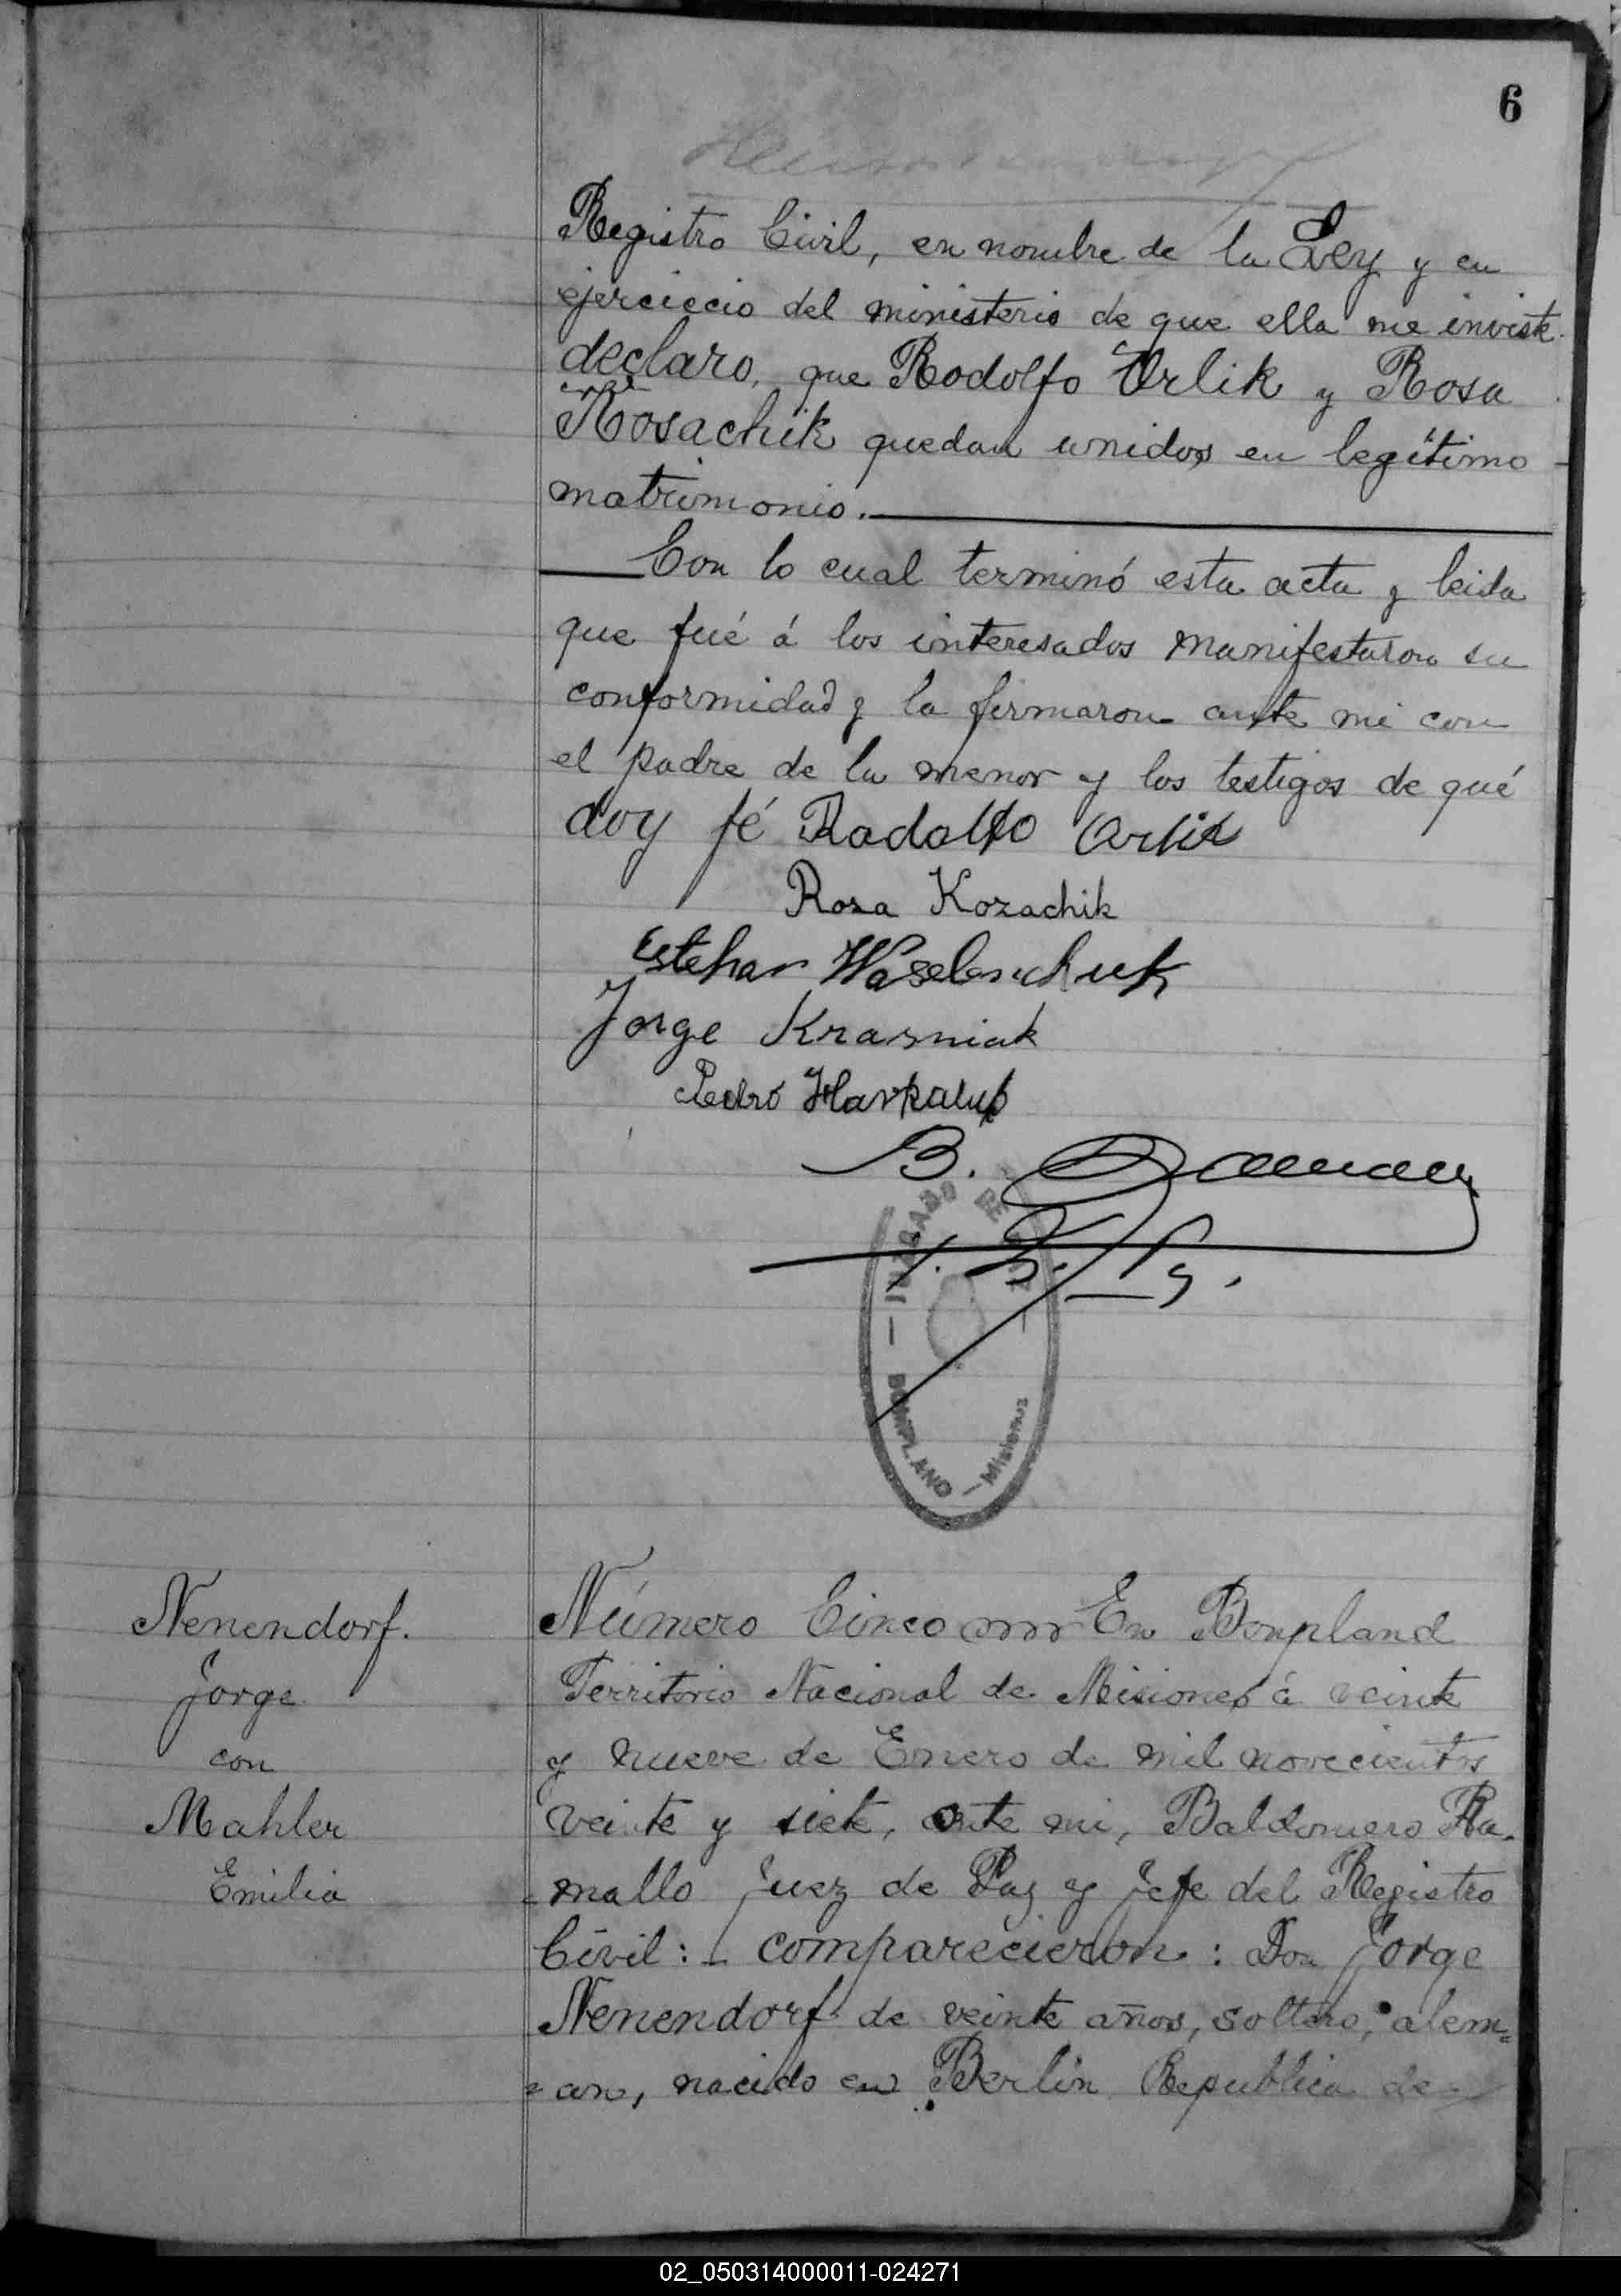 6
Registro Civil, en nombre de la Ley y en
ejerciccio del ministerio de que ella me inviste
declaro, que Rodolfo Orlik y Rosa
Kosachik quedan unidos en legítimo
matrimonio.
Con lo cual terminó esta acta y leida
que fué á los interesados manifestaron su
conformidad y la firmaron ante mi con
el padre de la menor y los testigos de qué
doy fé Radolfo Orlik
Roza Kozachik
Estehan Waselenchuk
Jorge Krasniak
Pedro
B.
JUZGADO DE PAZ
BOMPLAND - Misiones
Nenendorf.
Jorge
con
Mahler
Emilia
Número Cinco En Bonpland
Territorio Nacional de Misiones á veinte
y nueve de Enero de mil novecientos
veinte y siete, ante mi, Baldomero Ra-
=mallo Juez de Paz y Jefe del Registro
Civil: - comparecieron: Don Jorge
Nenendorf de veinte años, soltero, alem=
=an, nacido en Berlín Republica de
02_050314000011-024271